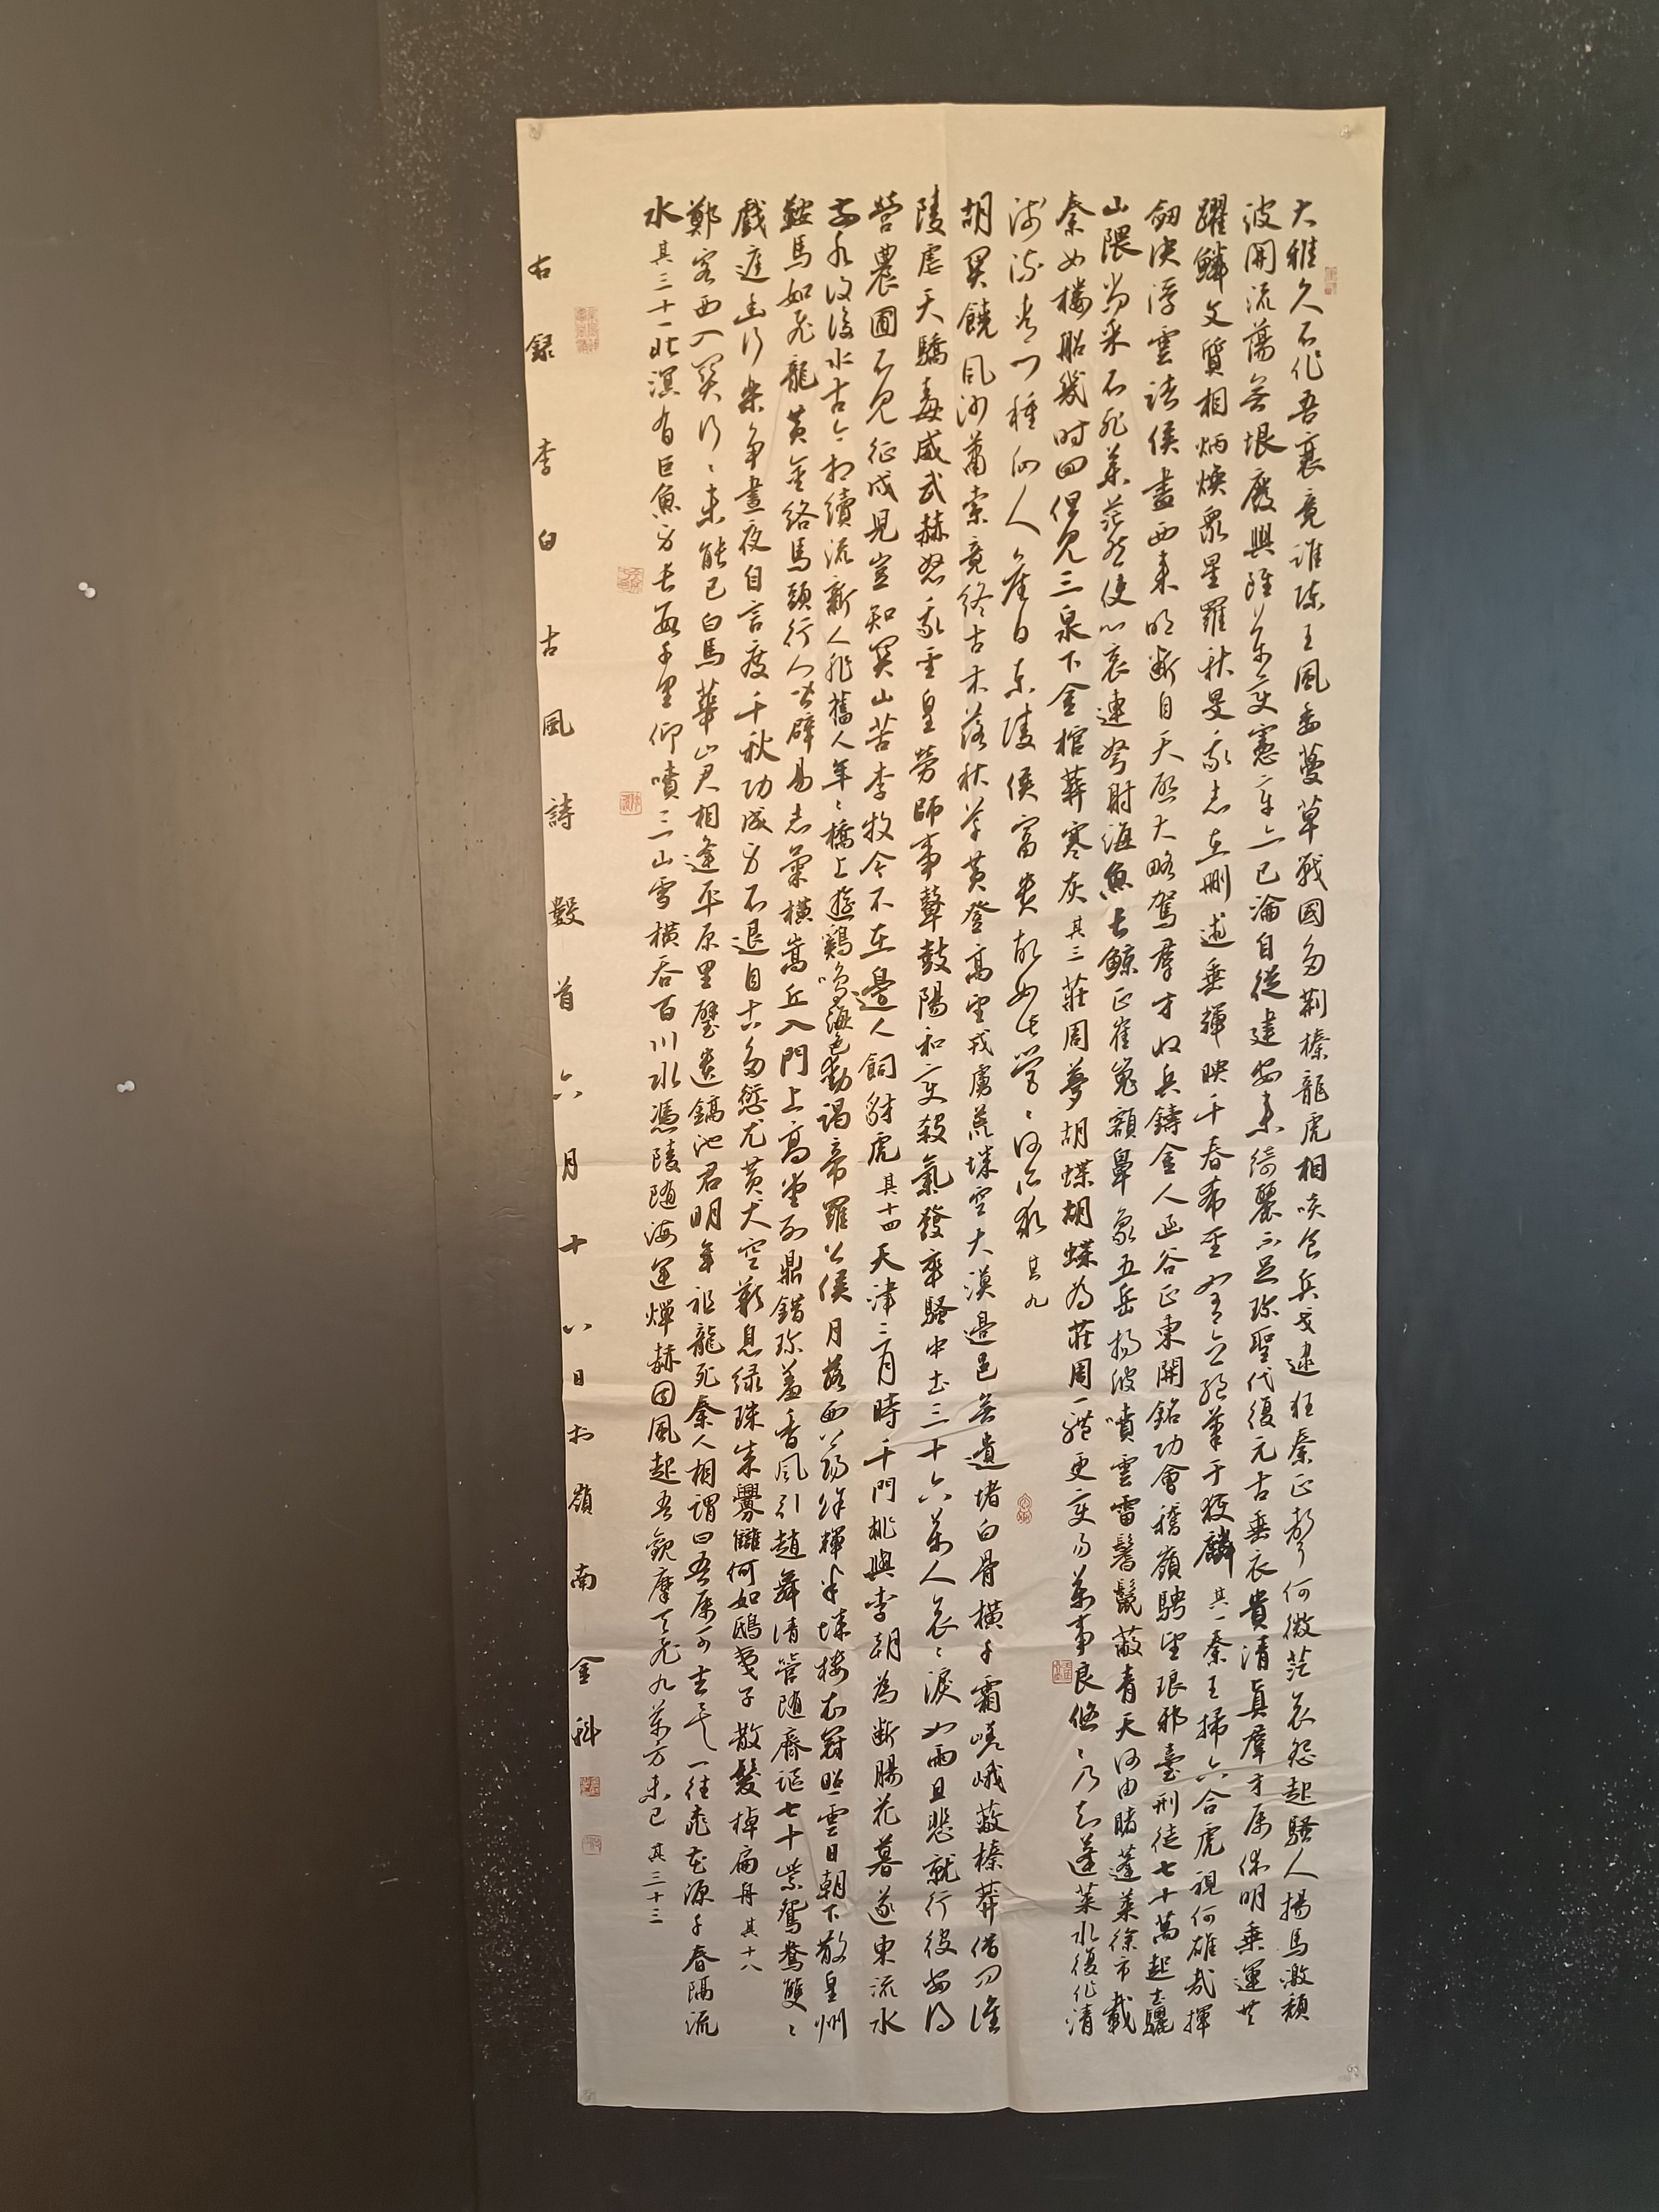 大雅久不作吾衰竟誰陳王風委蔓草戰國多荊榛龍虎相啖食兵戈逮狂秦正聲何微茫哀怨起騷人揚馬激頹
波開流蕩無垠廢興雖萬變憲章亦已淪自從建安來綺麗不足珍聖代復元古垂衣貴清真羣才屬休明乘運共
躍鱗文質相炳煥眾星羅秋旻我志在刪述垂輝映千春希聖如有立絕筆于獲麟其一秦王掃六合虎視何雄哉揮
劍決浮雲諸侯盡西來明斷自天啟大略駕羣才收兵鑄金人函谷正東開銘功會稽嶺騁望琅邪臺刑徒七十萬起土驪
山隈尚采不死藥茫然使心哀連弩射海魚長鯨正崔嵬額鼻象五岳揚波噴雲雷鬐鬣蔽青天何由睹蓬萊徐市載
秦女樓船幾時回但見三泉下金棺葬寒灰其三莊周夢胡蝶胡蝶為莊周一體更變易萬事良悠々乃知蓬萊水復作清
淺流青門種瓜人舊日東陵侯富貴故如此營々何所求其九
胡關饒風沙蕭索竟終古木落秋草黃登高望戎虜荒城空大漠邊邑無遺堵白骨橫千霜嵯峨蔽榛莽借問誰
陵虐天驕毒威武赫怒我聖皇勞師事鼙鼓陽和變殺氣發卒騷中土三十六萬人哀々淚如雨且悲就行役安得
營農圃不見征戍兒豈知關山苦李牧今不在邊人飼豺虎其十四天津三月時千門桃與李朝為斷腸花暮逐東流水
前水復後水古今相續流新人非舊人年々橋上遊雞鳴海色動謁帝羅公侯月落西上陽餘輝半城樓衣冠照雲日朝下散皇州
鞍馬如飛龍黃金絡馬頭行人皆辟易志氣橫嵩丘入門上高堂列鼎錯珍羞香風引趙舞清管隨齊謳七十紫鴛鴦雙々
戲庭幽行樂爭晝夜自言度千秋功成身不退自古多愆尤黃犬空歎息綠珠成釁讎何如鴟夷子散髮棹扁舟其十八
鄭客西入關行々未能已白馬華山君相逢平原里璧遺鎬池君明年祖龍死秦人相謂曰吾屬可去矣一往桃花源千春隔流
水其三十一北溟有巨魚身長數千里仰噴三山雪橫吞百川水憑陵隨海運燀赫因風起吾觀摩天飛九萬方未已其三十三
右錄李白古風詩數首六月十八日於嶺南金科